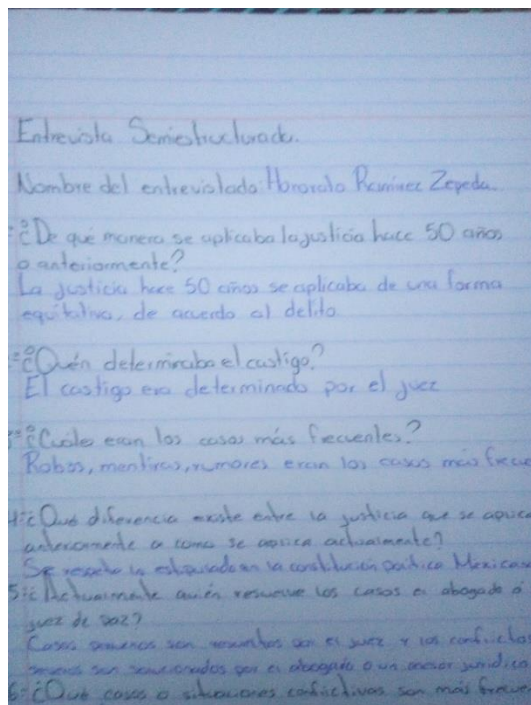 Entrevista Semiestructurada.
Nombre del entrevistado: Honorato Ramirez Zepeda.
¿De qué manera se aplicaba la justicia hace 50 años
o anteriormente?
La justicia hace 50 años se aplicaba de una forma
equitativa, de acuerdo al delito
¿Quén determinaba el castigo?
El castigo era determinado por el juez
¿Cuáles eran los casos más frecuentes?
Robos, mentiras, rumores eran los casos más frecue
4: ¿Qué diferencia existe entre la justicia que se aplica
anteriormente a como se aplica actualmente?
Se respeta lo estipulado en la constitución política Mexicana
5: ¿Actualmente quién resuelve los casos el abogado o
juez de paz?
Casos son resueltos por el juez y los conflictos
son por el abogado o un asesor jurídico
6: ¿Qué casos o situaciones conflictivas son más frecue